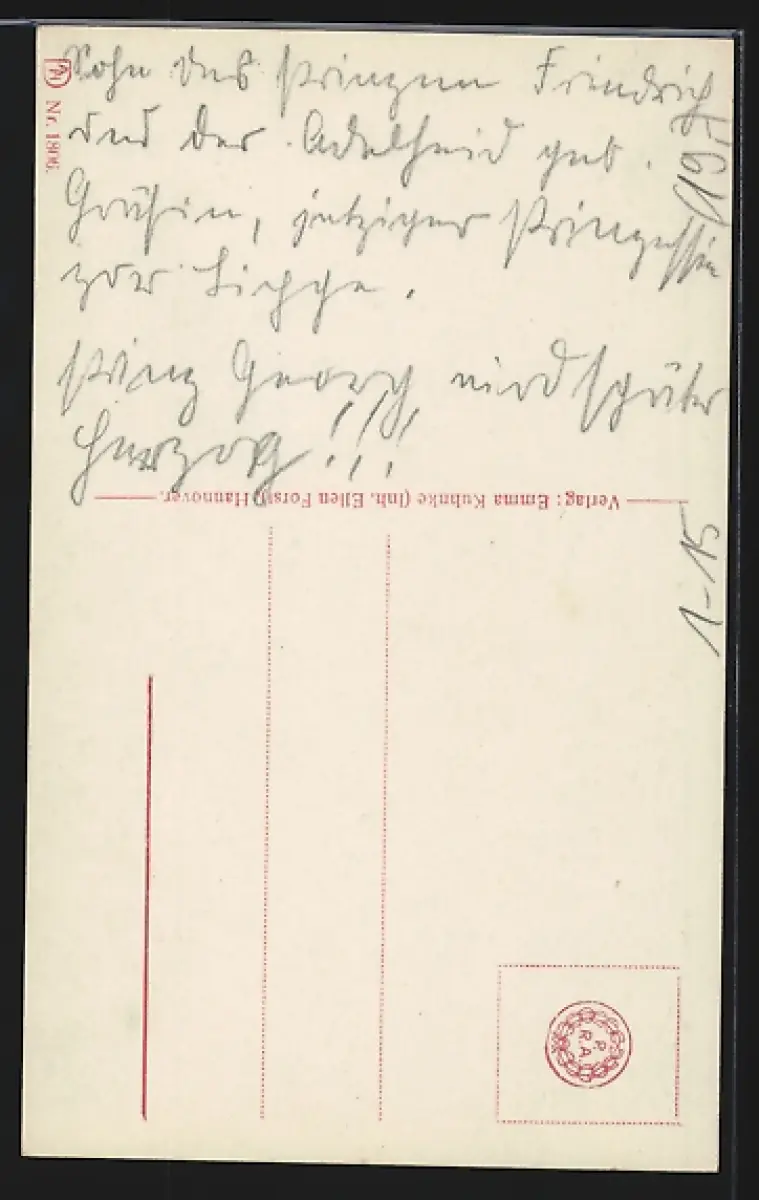 Sohn des Prinzen Friedrich
und der Adelheid geb.
Gräfin, jetziger Prinzessin
zur Lippe.
Prinz Georg wird später
Herzog!!!
Nr. 1806.
Verlag: Emma Kuhnke (Inh. Ellen Forst) Hannover.
1-15